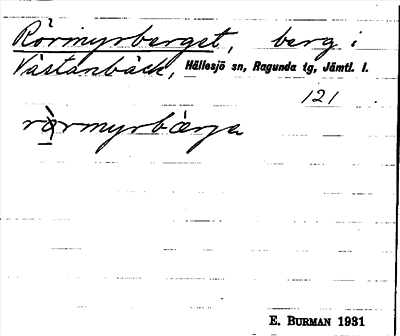 Rörmyrberget, berg i
Västanbäck, Hällesjö sn, Ragunda tg, Jämtl. l.
121
E. BURMAN 1931